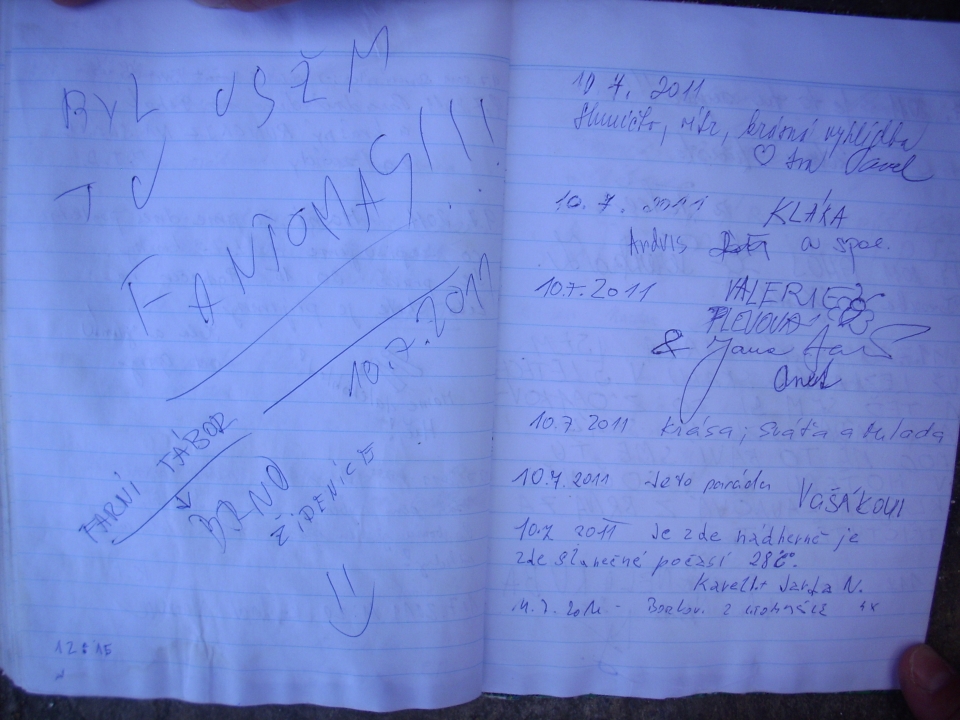 BYL JSEM
TU
FANTOMAS!!!
10.7.2011
FARNÍ TÁBOR
BRNO
ŽIDENICE
12:15
10.7. 2011
Sluníčko, vítr, krásná vyhlídka
♡ Pavel
10.7. 2011 KLÁRA
a spol.
10.7.2011 VALERIE
PLEVOVÁ
& Jana
10.7 2011 Krása; Sváťa a Mlada
10.7.2011 Je to paráda VAŠÁKOVI
10.7 2011 Je zde nádherně je
zde slunečné počasí 28°C.
Karel + Jarka N.
11.7.2011 -